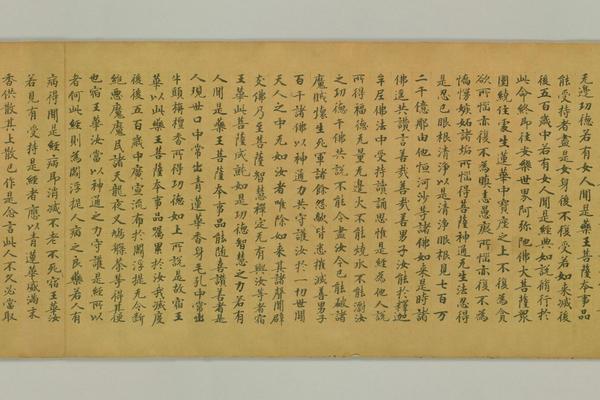 无邊功德若有女人聞是藥王菩薩本事品
能受持者盡是女身後不復受若如來滅後
後五百歲中若有女人聞是經典如說修行於
此命終即往安樂世界阿弥陀佛大菩薩衆
圍繞住處生蓮華中寶座之上不復爲貪
欲所惱亦復不爲瞋恚愚癡所惱亦復不爲
憍慢嫉妬諸垢所惱得菩薩神通无生法忍得
是忍已眼根清淨以是清淨眼根見七百万
二千億那由他恒河沙等諸佛如來是時諸
佛遙共讚言善哉善哉善男子汝能於釋迦
牟尼佛法中受持讀誦思惟是經爲他人說
所得福德无量无邊火不能燒水不能漂汝
之功德千佛共說不能令盡汝今已能破諸
魔賊壞生死軍諸餘怨敵皆悉摧滅善男子
百千諸佛以神通力共守護汝於一切世閒
天人之中无如汝者唯除如來其諸聲聞辟
支佛乃至菩薩智慧禪定无有與汝等者宿
王華此菩薩成就如是功德智慧之力若有
人聞是藥王菩薩本事品能隨喜讚善者是
人現世口中常出青蓮華香身毛孔中常出
牛頭栴檀香所得功德如上所說是故宿王
華以此藥王菩薩本事品囑累於汝我滅度
後後五百歲中廣宣流布於閻浮提无令斷
絶惡魔魔民諸天龍夜叉鳩槃荼等得其便
也宿王華汝當以神通之力守護是經所以
者何此經則爲閻浮提人病之良藥若人有
病得聞是經病即消滅不老不死宿王華汝
若見有受持是經者應以青蓮華盛滿末
香供散其上散已作是念言此人不久必當取